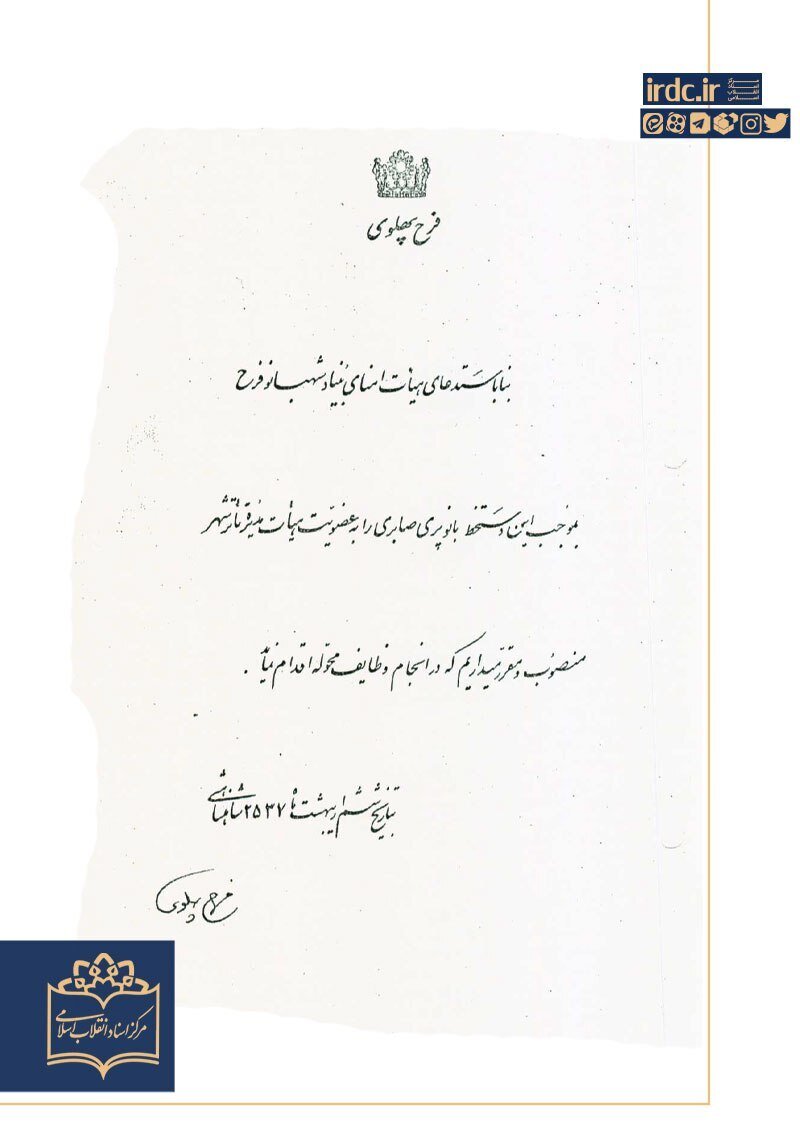 irdc.ir
مرکز
اسناد
انقلاب
اسلامی
فرح پهلوی
بنا باستدعای هیأت امنای بنیاد شهبانو فرح
بموجب این دستخط بانو پری صابری را به عضویت هیأت مدیره تاتر شهر
منصوب و مقرر میداریم که در انجام وظایف محوله اقدام نماید .
بتاریخ ششم اردیبهشت ماه ۲۵۳۷ شاهنشاهی
فرح پهلوی
مرکز اسناد انقلاب اسلامی